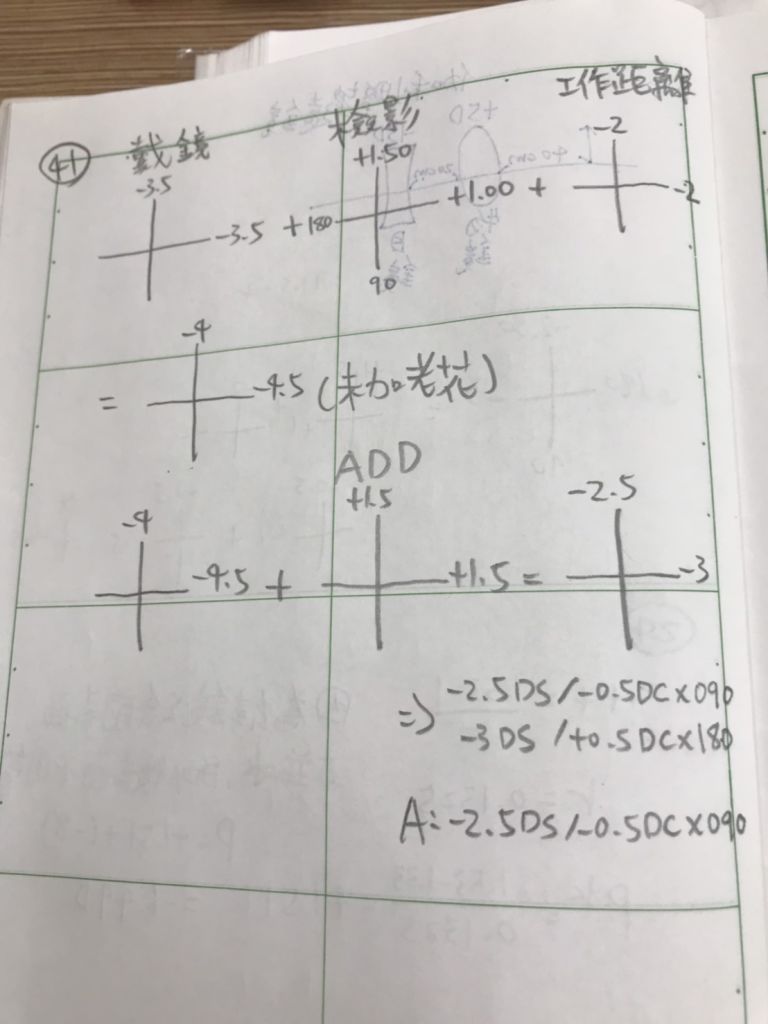 41 戴鏡 檢影 工作距離
-3.5 +1.50 -2
-3.5 + 180 +1.00 + -2
90
-4
= -4.5 (未加老花)
ADD
-4 +1.5 -2.5
-4.5 + +1.5 = -3
=> -2.5DS/-0.5DC×090
-3DS /+0.5DC×180
A:-2.5DS/-0.5DC×090